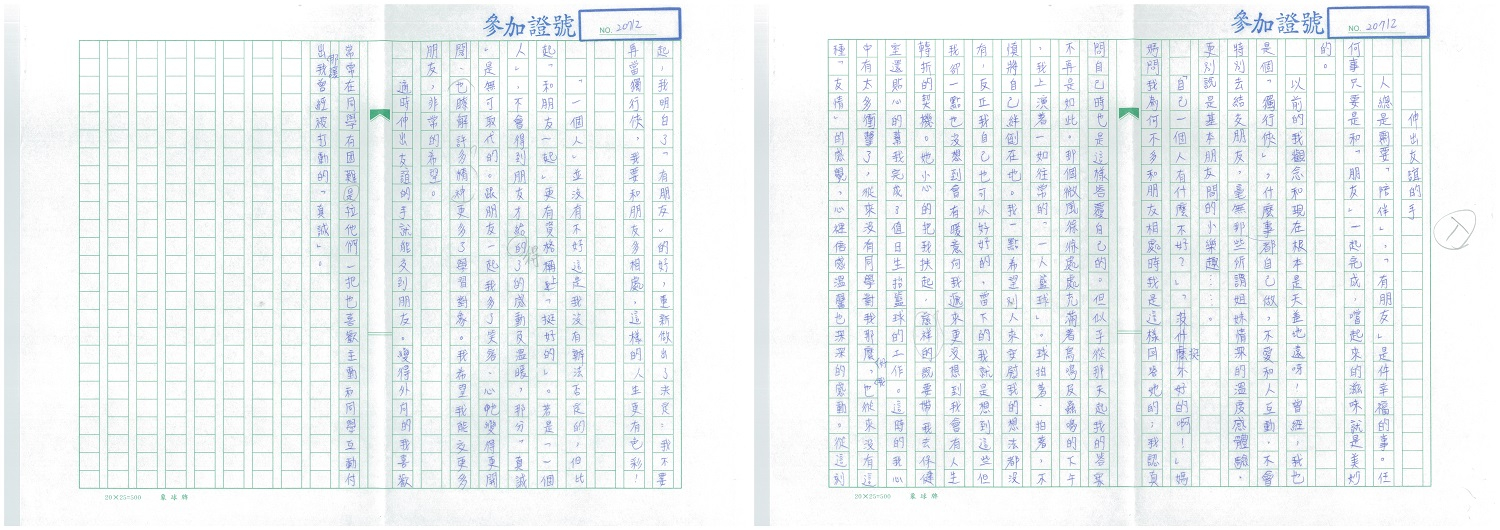 參加證號 NO. 20712
伸出友誼的手
人總是需要「陪伴」,「有朋友」是件幸福的事。任
何事只要是和「朋友」一起完成,嚐起來的滋味就是美妙
的。
以前的我觀念和現在根本是天差地遠呀!曾經,我也
是個「獨行俠」,什麼事都自己做,不愛和人互動,不會
特別去結交朋友,毫無那些所謂姐妹情深的溫度感體驗,
更別說是基本朋友間的小樂趣……。
「自己一個人有什麼不好?」「沒什麼不好的啊!」媽
媽問我為何不多和朋友相處時我是這樣回答她的;我認真
問自己時也是這樣答覆自己的。但似乎從那天起我的答案
不再是如此。那個微風徐徐處處充滿著鳥鳴及蟲鳴的下午
,我上演著一如往常的「一人籃球」。球拍著、拍著,不
慎將自己絆倒在地。我一點希望別人來安慰我的想法都沒
有,反正我自己也可以好好的,當下的我就是想到這些但
我卻一點也沒想到會有暖意向我遞來更沒想到我會有人生
轉折的契機。她小心的把我扶起,慈祥的說要帶我去保健
室還貼心的幫我完成了值日生抬籃球的工作。這時的我心
中有太多衝擊了,從來沒有同學對我那麼,也從來沒有這
種「友情」的感覺,心裡倍感溫馨也深深的感動。從這刻
參加證號 NO. 20712
起,我明白了「有朋友」的好,重新做出了決定:我不要
再當獨行俠,我要和朋友多相處,這樣的人生更有色彩!
「一個人」並沒有不好這是我沒有辦法否定的,但比
起「和朋友一起」更有資格稱「挺好的」。若是「一個
人」,不會得到朋友才給的了的感動及溫暖,那分「真誠
」是無可取代的。跟朋友一起我多了笑容,心地變得更開
闊,也瞭解許多情緒更多了學習對象。我希望我能交更多
朋友,非常的希望。
適時伸出友誼的手就能交到朋友。變得外向的我喜歡
常常在同學有困難是拉他們一把也喜歡主動和同學互動付
出我曾經被打動的「真誠」。
20×25=500 象球牌
20×25=500 象球牌